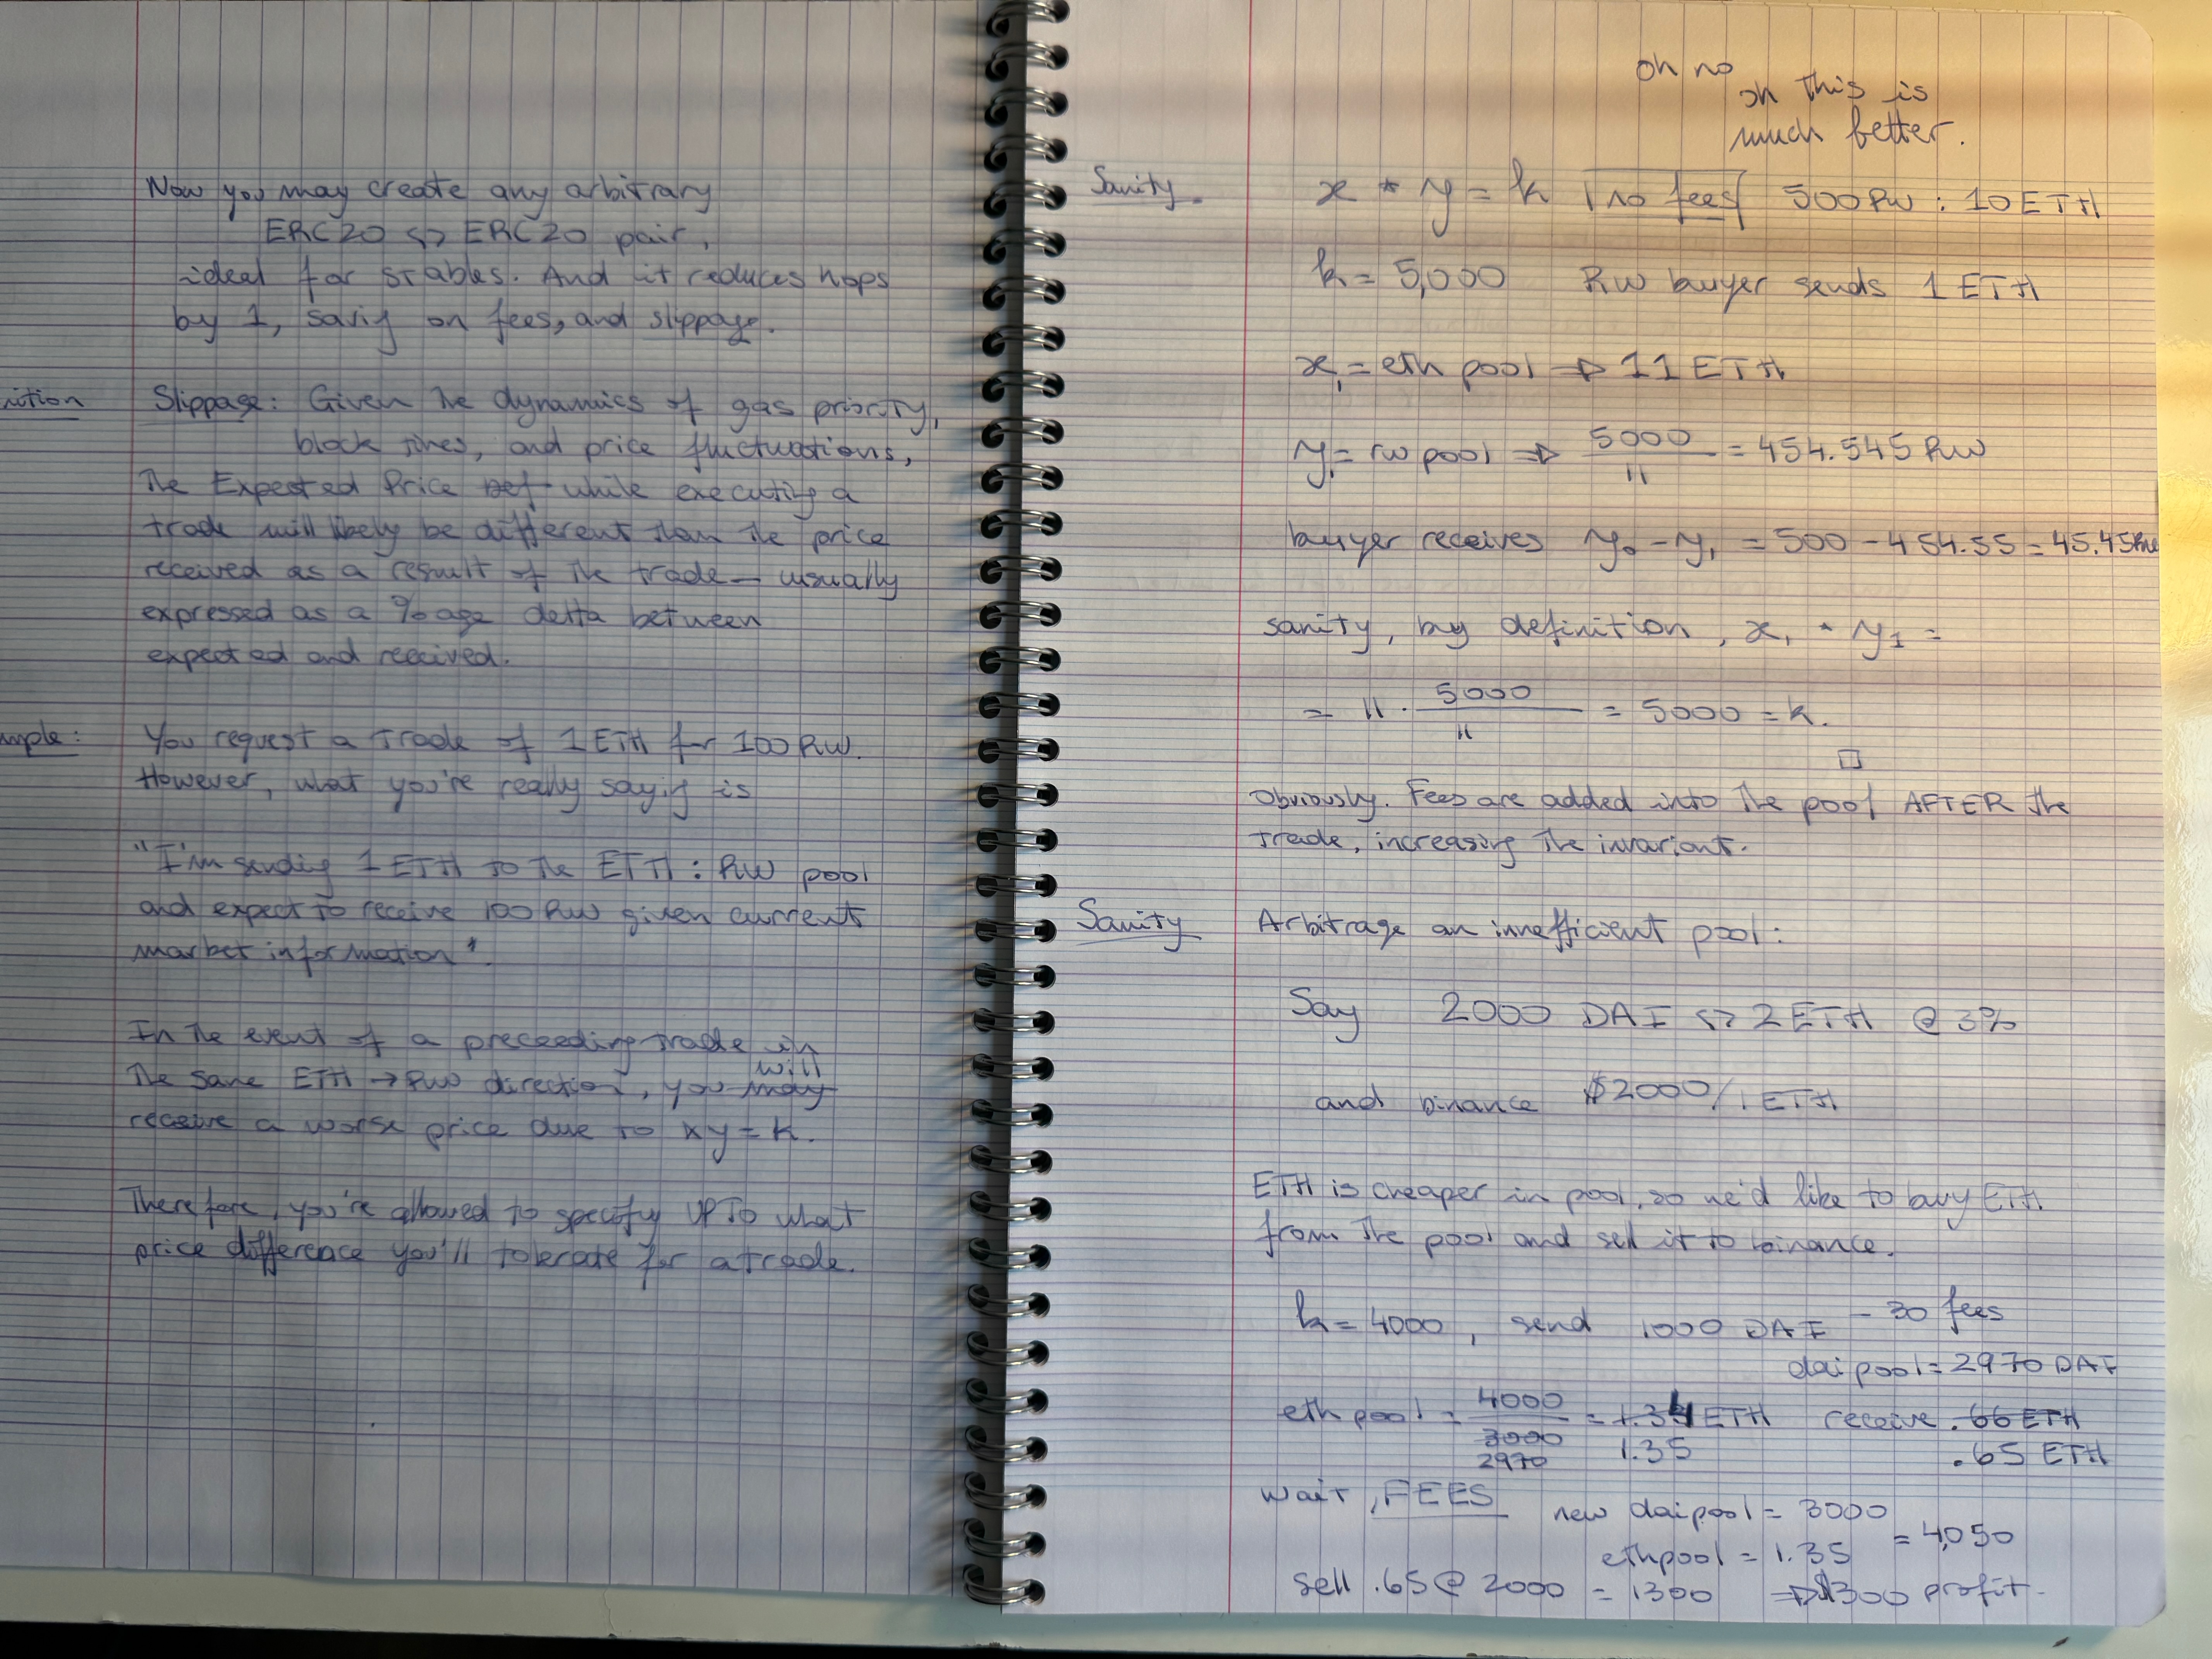 Now you may create any arbitrary
ERC20 <-> ERC20 pair,
ideal for stables. And it reduces hops
by 1, savig on fees, and slippage.
nition Slippage: Given the dynamics of gas priority,
block times, and price fluctuations,
the Expected Price while executing a
trade will likely be different than the price
received as a result of the trade — usually
expressed as a %age delta between
expected and received.
mple: You request a trade of 1 ETH for 100 RW.
However, what you're really sayig is
"I'm sending 1 ETH to the ETH : RW pool
and expect to receive 100 RW given current
market information".
In the event of a preceeding trade in
the same ETH → RW direction, you may will
receive a worse price due to xy = k.
Therefore, you're allowed to specify UP TO what
price difference you'll tolerate for a trade.
oh no
oh this is
much better.
Sanity. x * y = k no fees 500 RW : 10 ETH
k = 5,000 RW buyer sends 1 ETH
x₁ = eth pool → 11 ETH
y₁ = rw pool → 5000/11 = 454.545 RW
buyer receives y₀ - y₁ = 500 - 454.55 = 45.45 RW
sanity, by definition, x₁ * y₁ =
= 11 · 5000/11 = 5000 = k.
□
Obviously. Fees are added into the pool AFTER the
trade, increasing the invariant.
Sanity Arbitrage an innefficient pool:
Say 2000 DAI <-> 2 ETH @ 3%
and binance $2000/1 ETH
ETH is cheaper in pool, so we'd like to buy ETH
from the pool and sell it to binance.
k = 4000, send 1000 DAI - 30 fees
dai pool = 2970 DAI
eth pool = 4000/3000 = 1.34 ETH receive .66 ETH
2970 1.35 .65 ETH
wait, FEES new dai pool = 3000
ethpool = 1.35 = 4,050
sell .65 @ 2000 = 1300 → $300 profit.